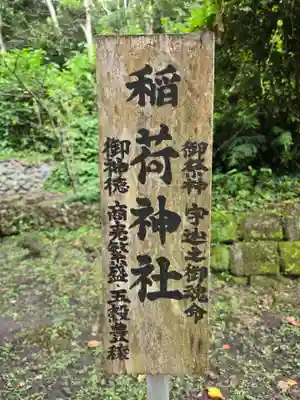 稲荷神社
御祭神 宇迦之御魂命
御神徳 商売繁盛・五穀豊穣